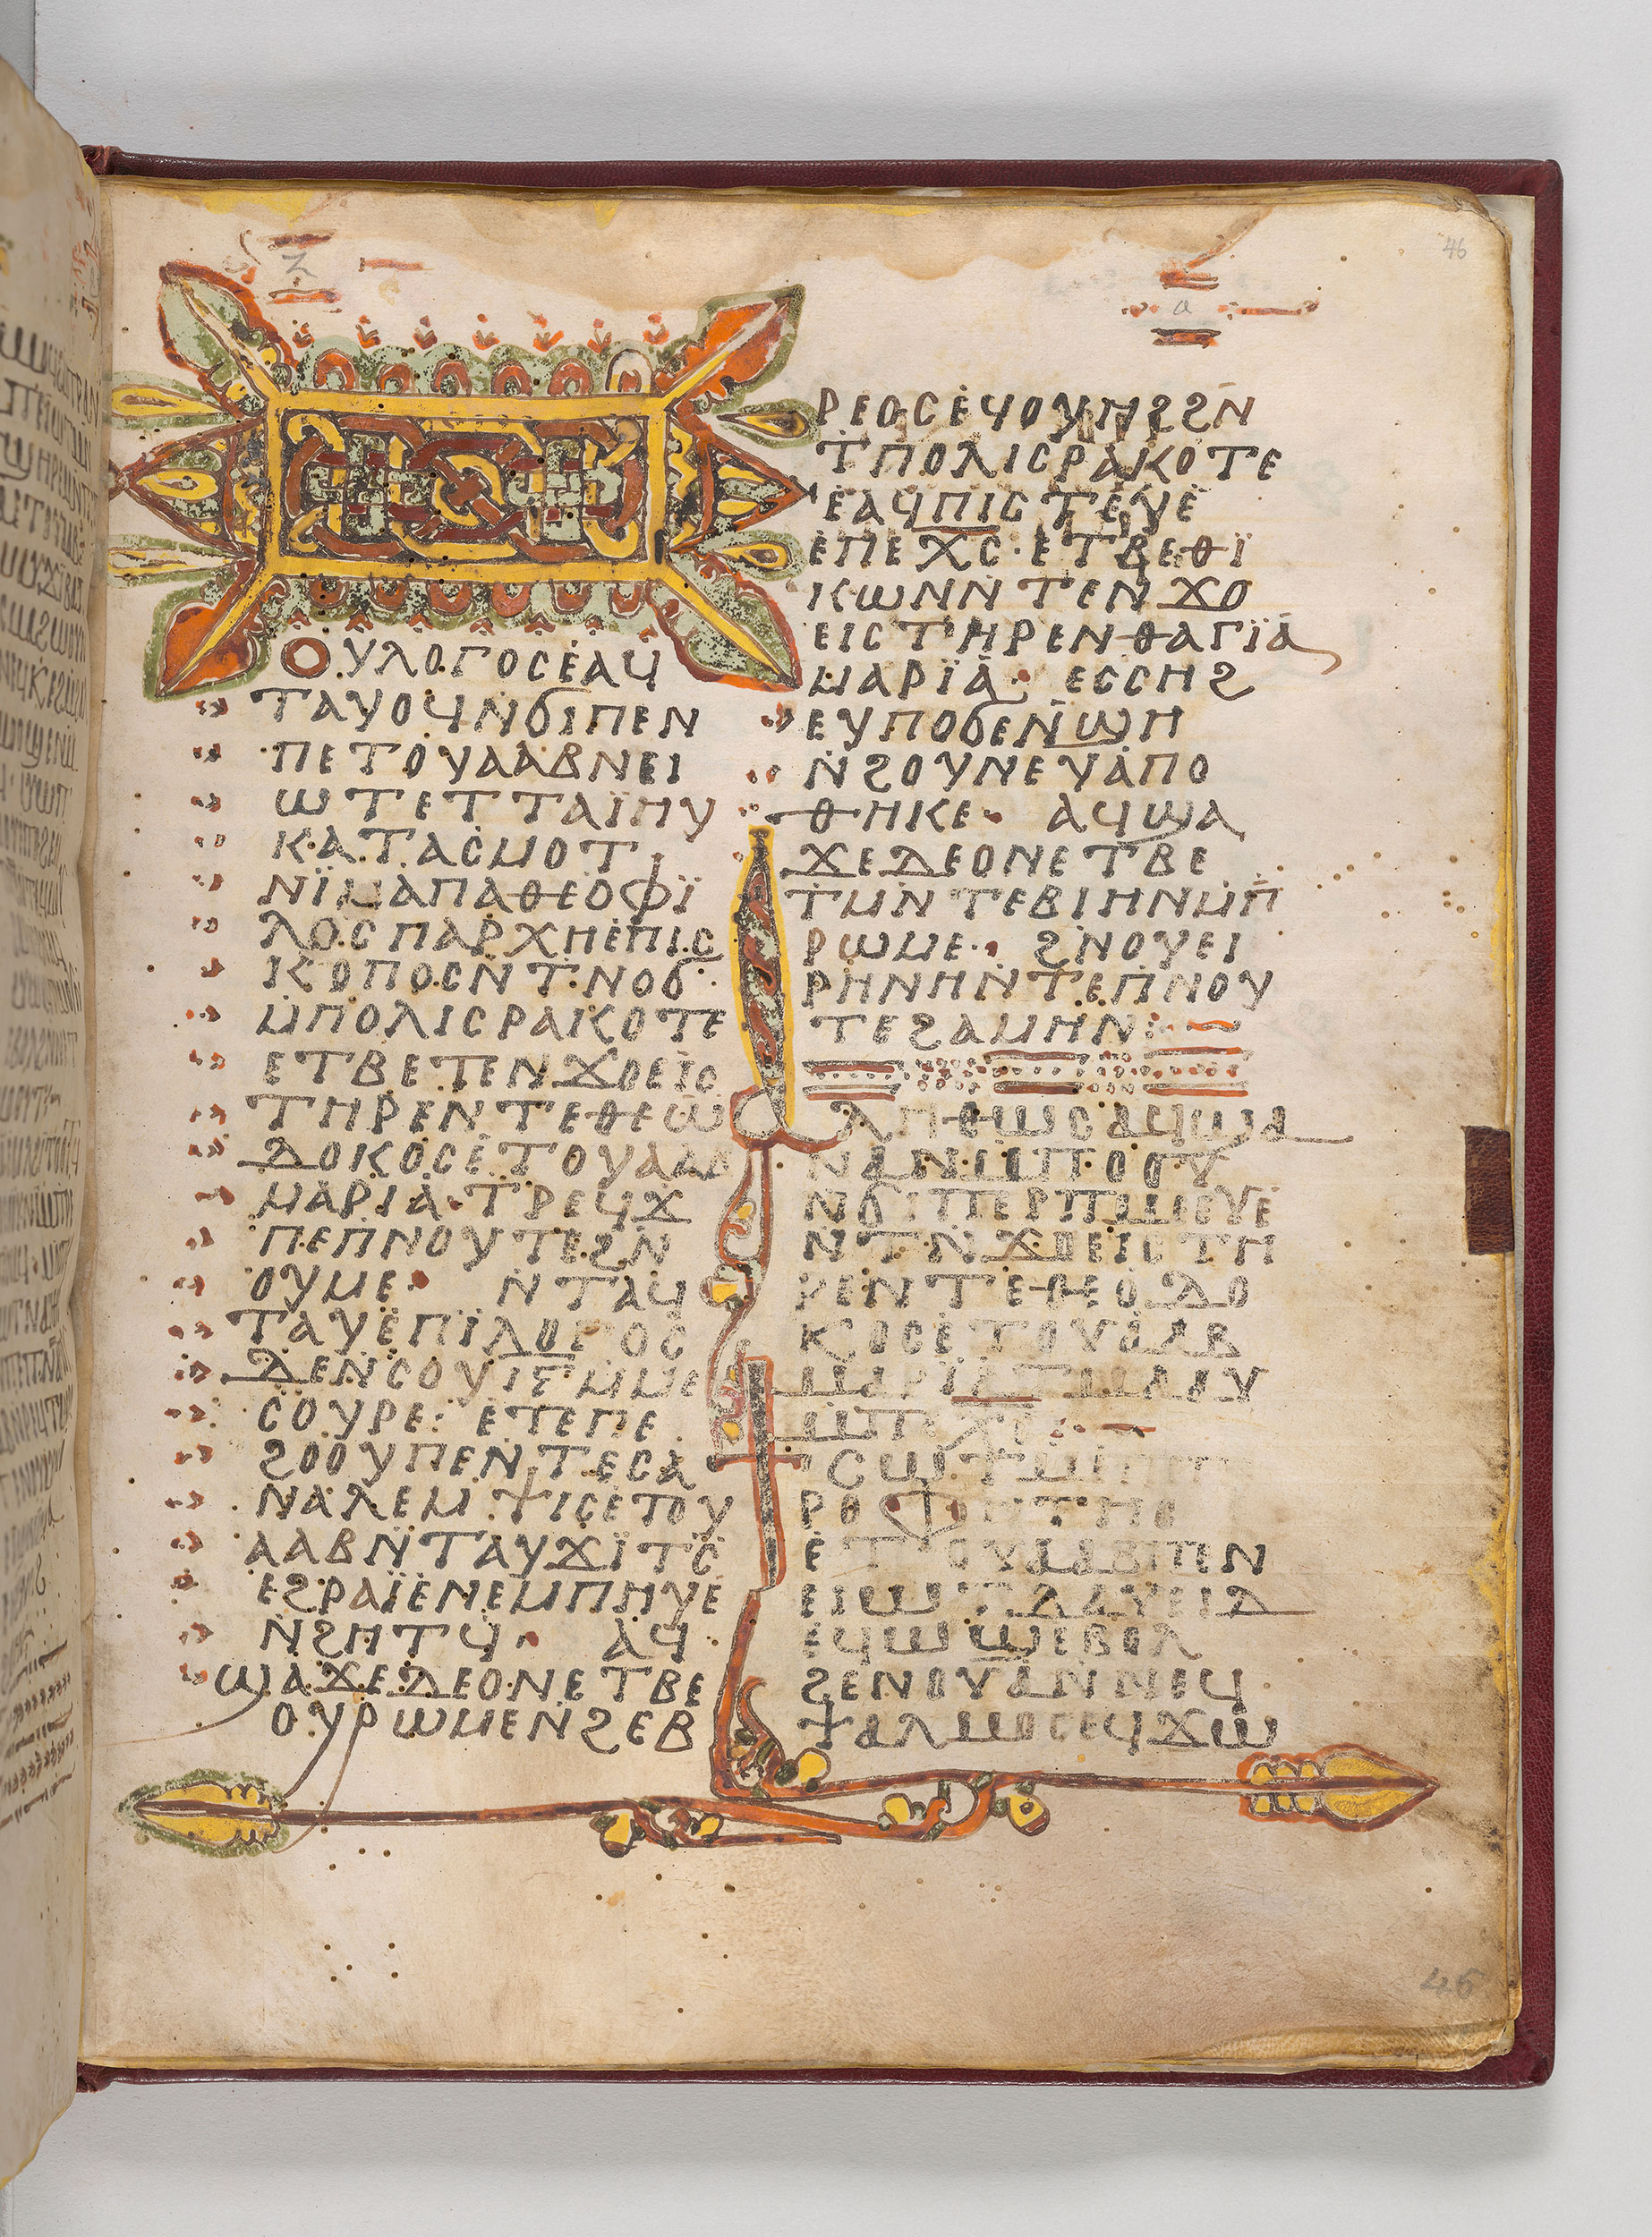 46
ⲁ
ⲟⲩⲗⲟⲅⲟⲥⲉⲁϥ
ⲧⲁⲩⲟϥⲛϭⲓⲡⲉⲛ
ⲡⲉⲧⲟⲩⲁⲁⲃⲛⲉⲓ
ⲱⲧⲉⲧⲧⲁⲓⲏⲩ
ⲕⲁⲧⲁⲥⲙⲟⲧ
ⲛⲓⲙⲁⲡⲁⲑⲉⲟⲫⲓ
ⲗⲟⲥⲡⲁⲣⲭⲏⲉⲡⲓⲥ
ⲕⲟⲡⲟⲥⲛⲧⲛⲟϭ
ⲙⲡⲟⲗⲓⲥⲣⲁⲕⲟⲧⲉ
ⲉⲧⲃⲉⲧⲉⲛϫⲟⲉⲓⲥ
ⲧⲏⲣⲉⲛⲧⲉⲑⲉⲱ
ⲇⲟⲕⲟⲥⲉⲧⲟⲩⲁⲁⲃ
ⲙⲁⲣⲓⲁ· ⲧⲣⲉϥϫ
ⲡⲉⲡⲛⲟⲩⲧⲉϩⲛ
ⲟⲩⲙⲉ· ⲛⲧⲁϥ
ⲧⲁⲩⲉⲡⲓⲗⲟⲅⲟⲥ
ⲇⲉⲛⲥⲟⲩⲓⲋⲙⲙⲉ
ⲥⲟⲩⲣⲉ: ⲉⲧⲉⲡⲉ
ϩⲟⲟⲩⲡⲉⲛⲧⲉⲥⲁ
ⲛⲁⲗⲉⲙⲯⲓⲥⲉⲧⲟⲩ
ⲁⲁⲃⲛⲧⲁⲩϫⲓⲧⲥ
ⲉϩⲣⲁⲓⲉⲛⲉⲙⲡⲏⲩⲉ
ⲛϩⲏⲧϥ· ⲁϥ
ϣⲁϫⲉⲇⲉⲟⲛⲉⲧⲃⲉ
ⲟⲩⲣⲱⲙⲉⲛϩⲉⲃ
ⲣⲉⲟⲥⲉϥⲟⲩⲏϩϩⲛ
ⲧⲡⲟⲗⲓⲥⲣⲁⲕⲟⲧⲉ
ⲉⲁϥⲡⲓⲥⲧⲉⲩⲉ
ⲉⲡⲉⲭⲥ·ⲉⲧⲃⲉⲑⲓ
ⲕⲱⲛⲛⲧⲉⲛϫⲟ
ⲉⲓⲥⲧⲏⲣⲉⲛⲑⲁⲅⲓⲁ
ⲙⲁⲣⲓⲁ· ⲉⲥⲥⲏϩ
ⲉⲩⲡⲟϭⲉⲛϣⲏ
ⲛϩⲟⲩⲛⲉⲩⲁⲡⲟ
ⲑⲏⲕⲉ· ⲁϥϣⲁ
ϫⲉⲇⲉⲟⲛⲉⲧⲃⲉ
ⲧⲙⲛⲧⲉⲃⲓⲏⲛⲙⲡ
ⲣⲱⲙⲉ· ϩⲛⲟⲩⲉⲓ
ⲣⲏⲛⲏⲛⲧⲉⲡⲛⲟⲩ
ⲧⲉϩⲁⲙⲏⲛ:
ⲁⲗⲏⲑⲱⲥⲁϥϣⲁ
ⲛⲁⲛⲙⲡⲟⲟⲩ
ⲛϭⲓⲡⲉⲣⲡⲙⲉⲩⲉ
ⲛⲧⲛϫⲟⲉⲓⲥⲧⲏ
ⲣⲉⲛⲧⲉⲑⲉⲟⲇⲟ
ⲕⲟⲥⲉⲧⲟⲩⲁⲁⲃ
ⲙⲁⲣⲓⲁⲧⲙⲁⲁⲩ
ⲙⲡⲉⲭⲥ
ⲥⲱⲧⲙⲉⲡⲉⲡ
ⲣⲟⲫⲏⲧⲏⲥ
ⲉⲧⲟⲩⲁⲁⲃⲡⲉⲛ
ⲉⲓⲱⲧⲇⲁⲩⲉⲓⲇ
ⲉϥⲱϣⲉⲃⲟⲗ
ϩⲉⲛⲟⲩⲁⲛⲛⲉϥ
ⲯⲁⲗⲙⲟⲥⲉϥϫⲱ
46